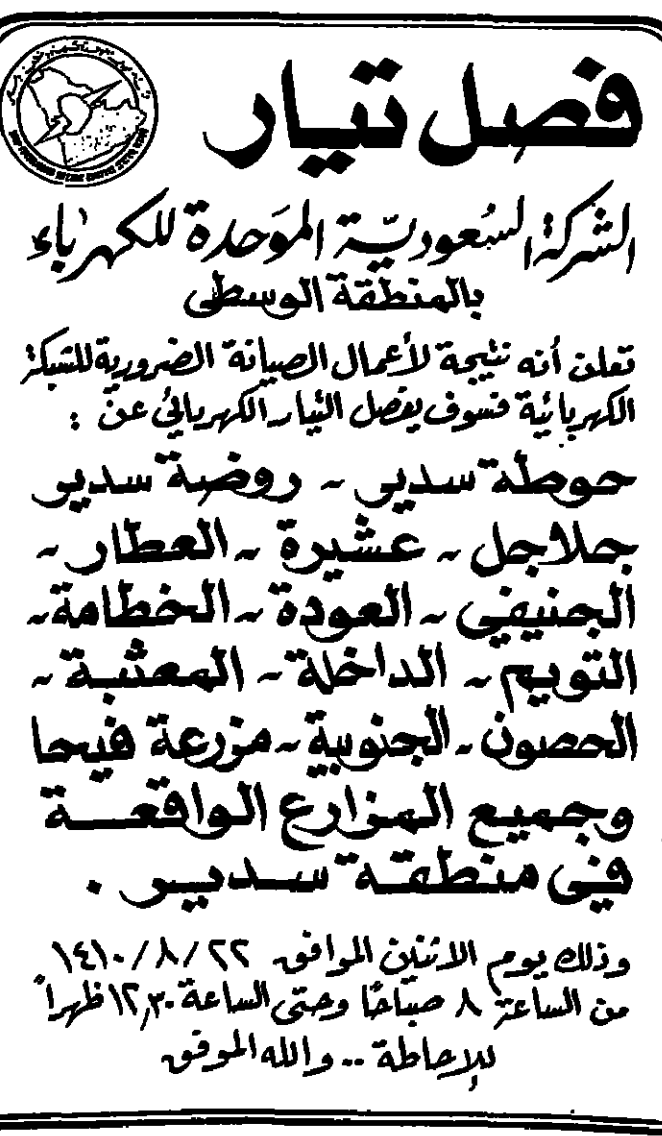 فصل تيار
الشركة السعوديّة الموَحدة للكهرباء
بالمنطقة الوسطى
تعلن أنه نتيجة لأعمال الصيانة الضرورية للشبكة
الكهربائية فسوف يفصل التيار الكهربائي عن :
حوطة سدير - روضة سدير
جلاجل - عشيرة - العطار -
الجنيفي - العودة - الخطامة -
التويم - الداخلة - المعشبة -
الحصون - الجنوبية - مزرعة فيحا
وجميع المزارع الواقعة
في منطقة سدير .
وذلك يوم الاثنين الموافق ٢٢ / ٨ / ١٤١٠
من الساعة ٨ صباحًا وحتى الساعة ١٢,٣٠ ظهراً
للإحاطة .. والله الموفق